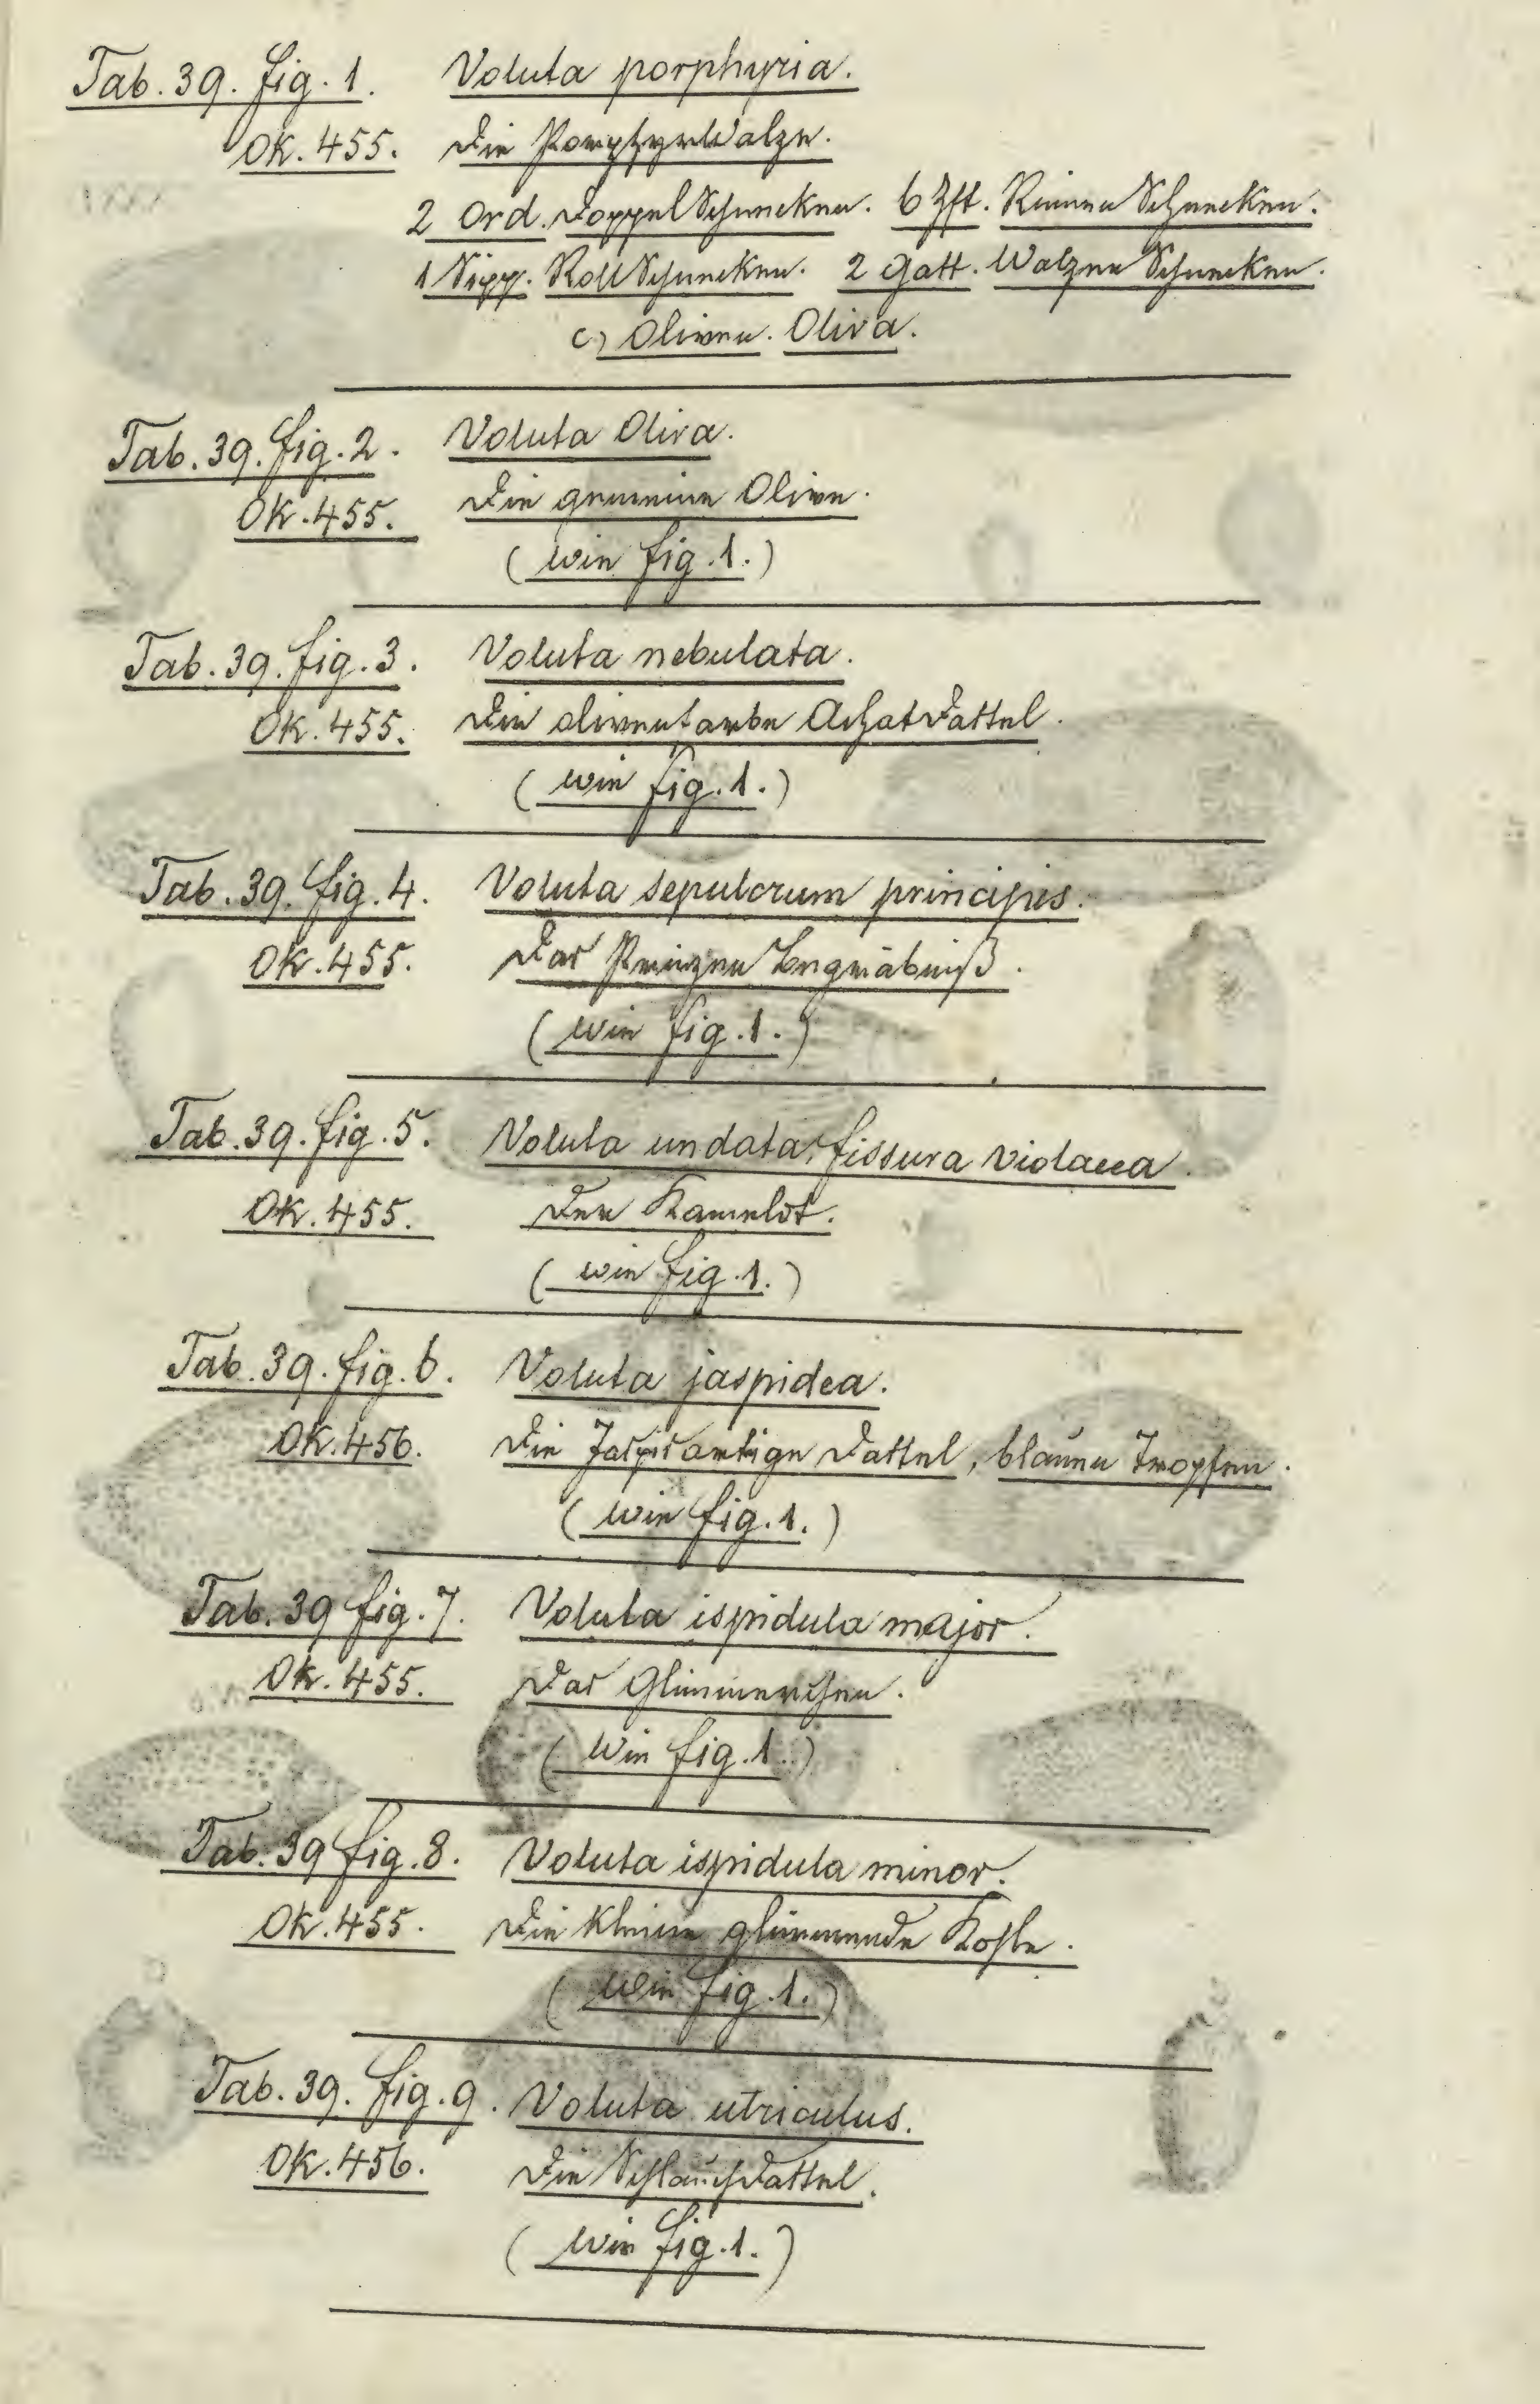 Tab. 39. fig. 1. Voluta porphyria.
Ok. 455. Die PorphyrWalze.
2 Ord. DoppelSchnecken. 6 Zft. RinnenSchnecken.
1 Sipp. RollSchnecken. 2 Gatt. WalzenSchnecken.
c) Oliven. Oliva.
Tab. 39. fig. 2. Voluta Oliva.
Ok. 455. Die gemeine Olive.
(wie fig. 1.)
Tab. 39. fig. 3. Voluta nebulata.
Ok. 455. Die olivenfarbe AchatDattel.
(wie fig. 1.)
Tab. 39. fig. 4. Voluta sepulcrum principis.
Ok. 455. Das PrinzenBegräbniß.
(wie fig. 1.)
Tab. 39. fig. 5. Voluta undata, fissura violacea.
Ok. 455. Der Kamelot.
(wie fig. 1.)
Tab. 39. fig. 6. Voluta jaspidea.
Ok. 456. Die Jaspisartige Dattel, blauen Tropfen.
(wie fig. 1.)
Tab. 39 fig. 7. Voluta ispidula major.
Ok. 455. Das Glimmerchen.
(Wie fig. 1.)
Tab. 39 fig. 8. Voluta ispidula minor.
Ok. 455. Die kleine glimmende Kohle.
(wie fig. 1.)
Tab. 39. fig. 9. Voluta utriculus.
Ok. 456. Die SchlauchDattel.
(wie fig. 1.)